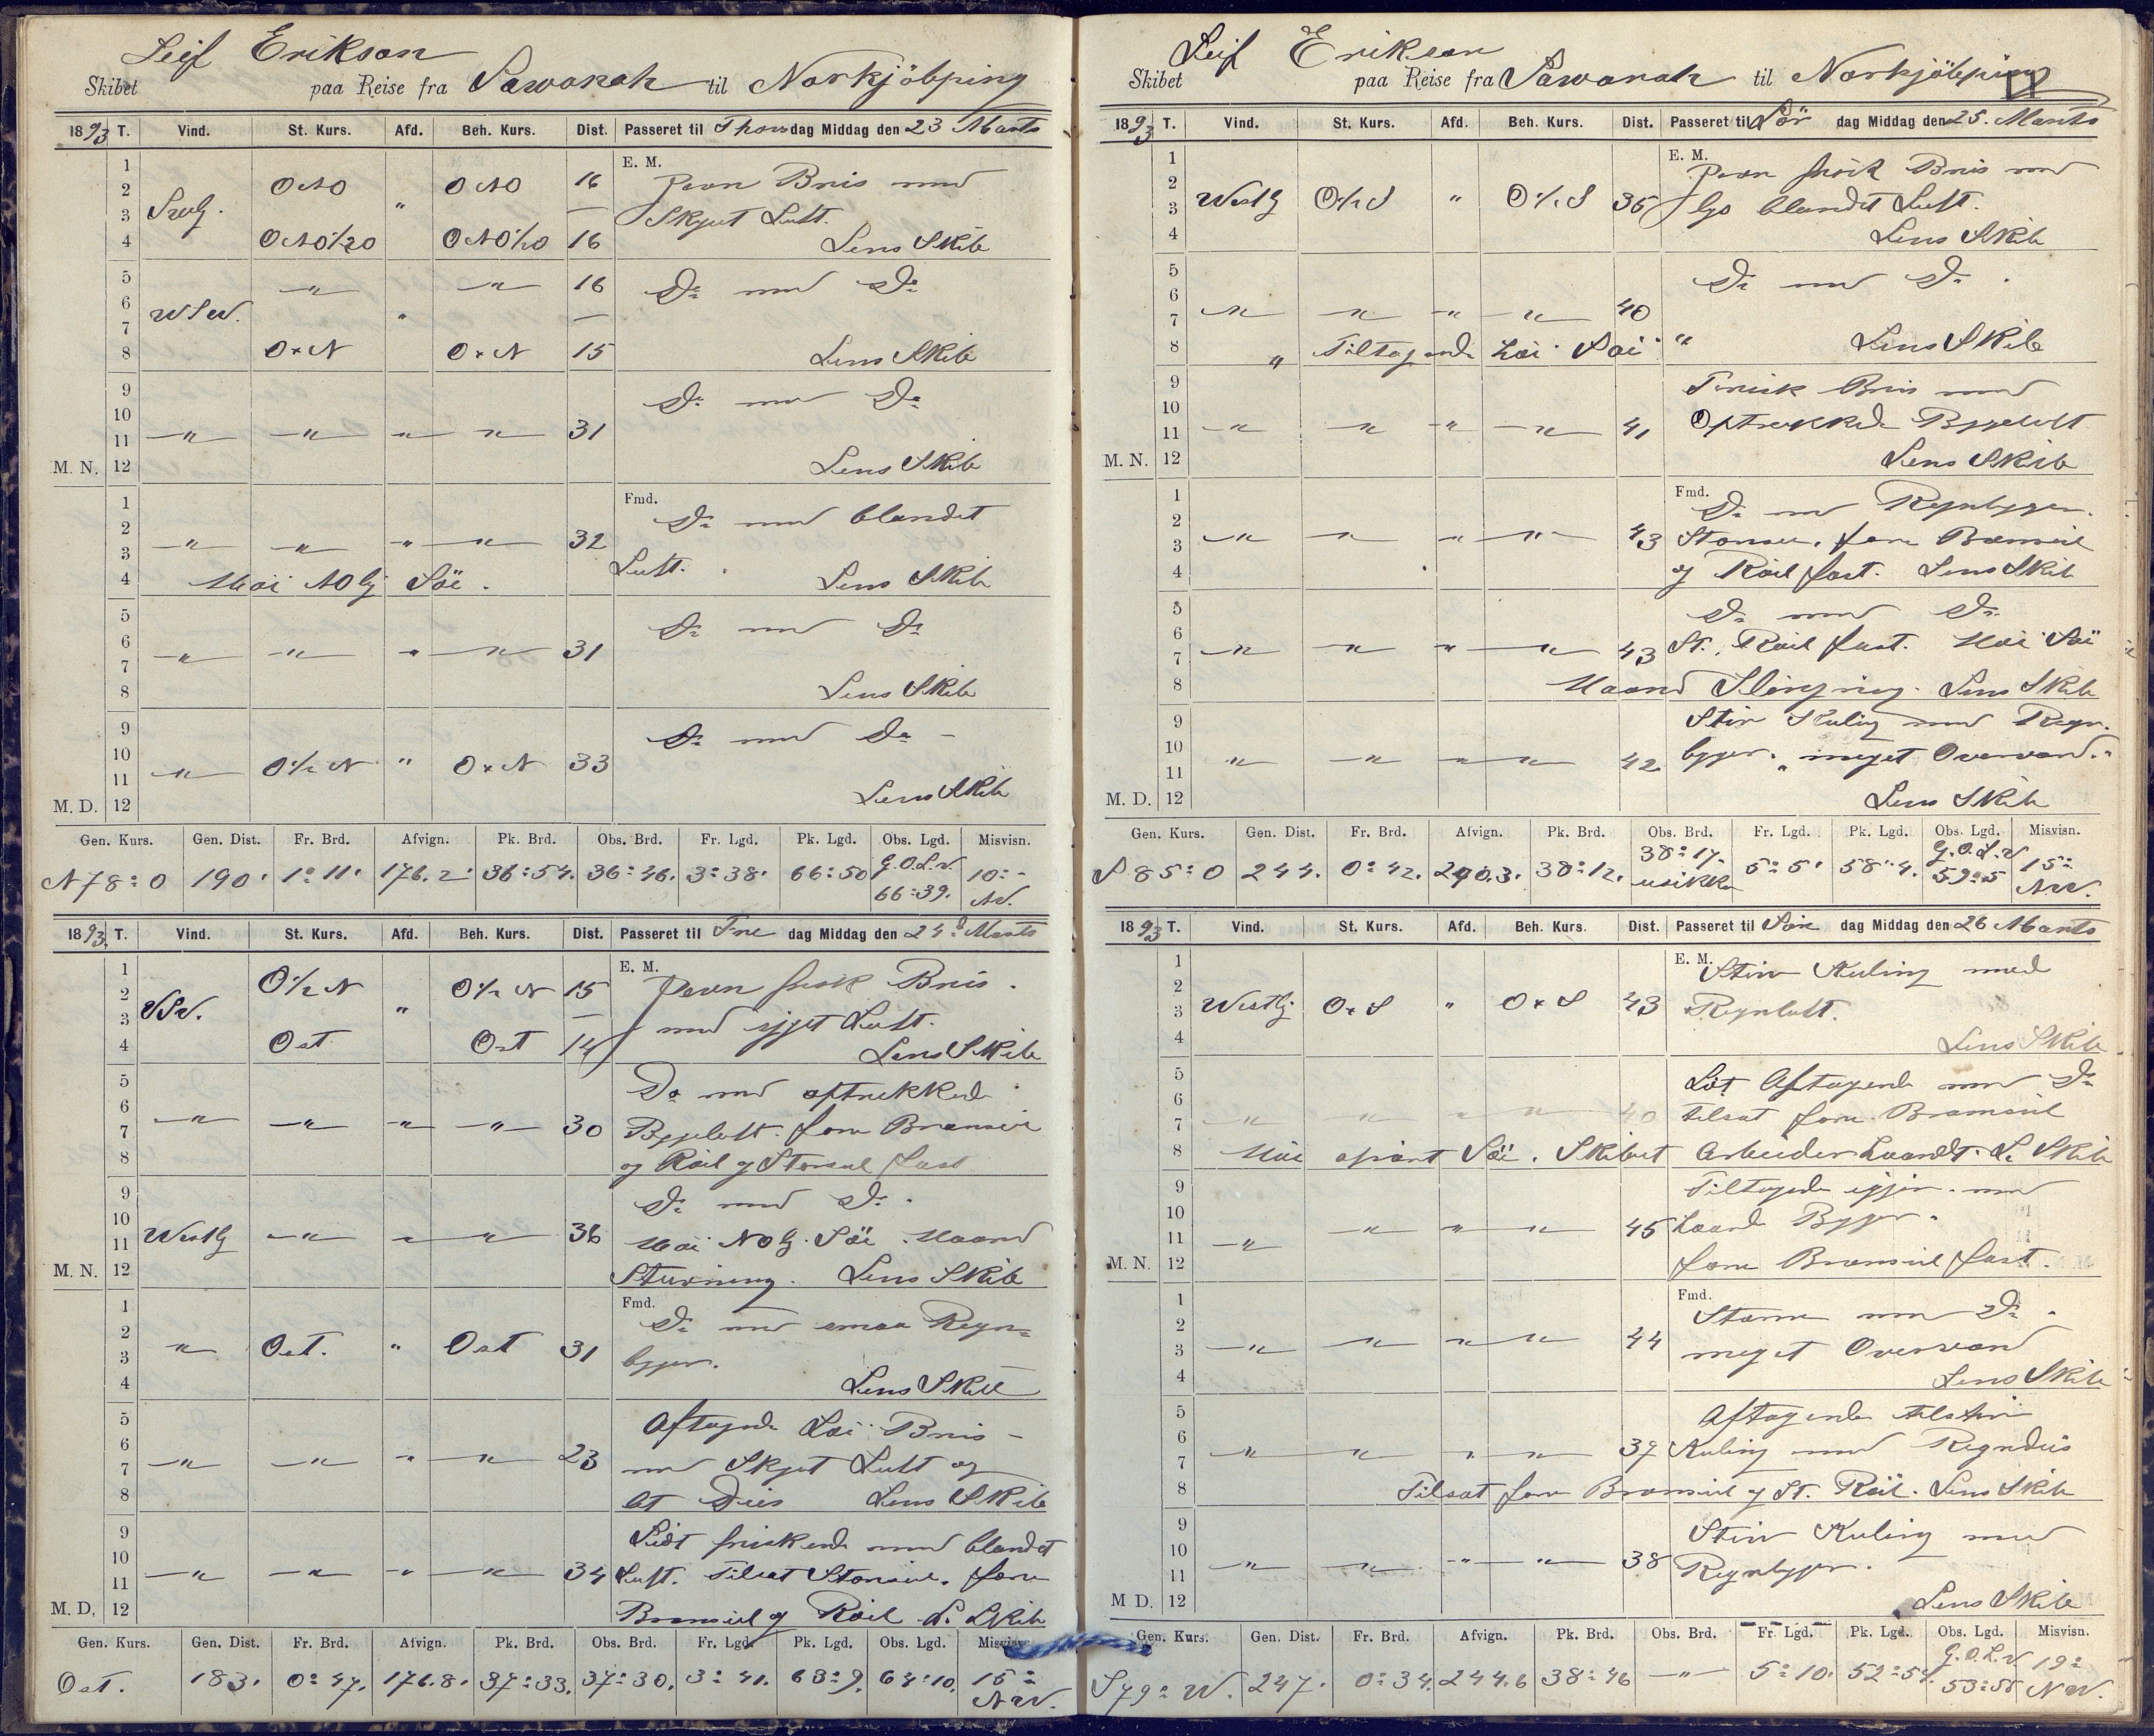 Leif Erikson
Skibet paa Reise fra Sawanah til Norkjöbping
1893 T. Vind. St. Kurs. Afd. Beh. Kurs. Dist. Passeret til Thorsdag Middag den 23 Marts
1 E. M.
2 ONO ONO 16 Jevn Bris med
3 Svlg. " — Skyet Luft.
4 ONO½O ONO½O 16 Lens Skib
5 " " 16 Do med Do
6 WSW. "
7 —
8 O x N O x N 15 Lens Skib
9 Do med Do
10
11 " " " " 31
M. N. 12 Lens Skib
1 Fmd.
2 Do med blandet
3 " " " " 32 Luft.
4 Høi NOlg Söi. Lens Skib
5 Do med Do
6
7 " " " " 31
8 Lens Skib
9 Do med Do
10 " O½N " O x N 33
11
M. D. 12 Lens Skib
Gen. Kurs. Gen. Dist. Fr. Brd. Afvign. Pk. Brd. Obs. Brd. Fr. Lgd. Pk. Lgd. Obs. Lgd. Misvisn.
N 78° O 190' 1° 11' 176.2' 36°54. 36°46. 3°38' 66°50 G.O.L.V. 66°39. 10° NV.
1893. T. Vind. St. Kurs. Afd. Beh. Kurs. Dist. Passeret til Fre dag Middag den 24d Marts
1 E. M.
2 O½N O½N 15 Jevn frisk Bris
3 VSV. " — med skyet Luft.
4 Ost Ost 14 Lens Skib
5 Do med optrukked
6
7 " " " " 30 Byeluft. fore Bramseil
8 og Röil og Storseil fast
9 Do med Do
10
11 Westlg " " " 36 Høi NOlg. Söi. Haard
M. N. 12 Sturning. Lens Skib
1 Fmd.
2 Do med smaa Regn-
3 " Ost. " Ost 31 byger.
4 Lens Skib
5 Aftagende Løi Bris
6
7 " " " " 23 med Skyet Luft og
8 Dis Lens Skib
9 Lidt friskende med blandet
10
11 " " " " 34 Luft. Tilsat Storseil. fore
M. D. 12 Bramseil og Röil L. Skib
Gen. Kurs. Gen. Dist. Fr. Brd. Afvign. Pk. Brd. Obs. Brd. Fr. Lgd. Pk. Lgd. Obs. Lgd. Misvisn.
Ost. 183. 0°47. 176.8. 37°33. 37°30. 3°41. 63°9. 64°10. 15° NW.
Leif Erikson
Skibet paa Reise fra Sawanah til Norkjöbping
1893 T. Vind. St. Kurs. Afd. Beh. Kurs. Dist. Passeret til Lör dag Middag den 25. Marts
1 E. M.
2 Jevn frisk Bris med
3 Westlg O½S " O½S 36 blandet Luft.
4 Lens Skib
5 Do med Do
6
7 " " " " 40
8 " Tiltagende høi Söi " Lens Skib
9 Frisk Bris med
10
11 " " " " 41 Optrukked Bygeluft
M. N. 12 Lens Skib
1 Fmd.
2 Do med Regnbyger.
3 " " " " 43 Storseil, fore Bramseil
4 og Röil fast. Lens Skib
5 Do med Do
6
7 " " " " 43 St. Röil fast. Høi Söi
8 Haard Slingring. Lens Skib
9 Stiv Kuling med Regn-
10
11 " " " " 42 byger. meget Overvand.
M. D. 12 Lens Skib
Gen. Kurs. Gen. Dist. Fr. Brd. Afvign. Pk. Brd. Obs. Brd. Fr. Lgd. Pk. Lgd. Obs. Lgd. Misvisn.
S 85° O 244. 0°42. 240.3. 38°12. 38°17. usikker 5°5' 58°4. G.O.L.V 59°5 15° NW.
1893 T. Vind. St. Kurs. Afd. Beh. Kurs. Dist. Passeret til Sön dag Middag den 26 Marts
1 E. M.
2 Stiv Kuling med
3 Westlg O x S " O x S 43 Regnluft.
4 Lens Skib
5 Lidt Aftagende med Do
6
7 " " " " 40 tilsat fore Bramseil
8 Høi Söi. Skibet Arbeider haardt. L. Skib
9 Tiltagende igjen med
10
11 " " " " 45 haarde Byger
M. N. 12 fore Bramseil fast.
1 Fmd.
2 Storm med Do
3 " " " " 44 meget Overvand
4 Lens Skib
5 Aftagende til stiv
6
7 " " " " 37 Kuling med Regndis
8 Tilsat fore Bramseil og St. Röil. Lens Skib
9 Stiv Kuling med
10
11 " " " " 38 Regnbyger.
M D. 12 Lens Skib
Gen. Kurs. Gen. Dist. Fr. Brd. Afvign. Pk. Brd. Obs. Brd. Fr. Lgd. Pk. Lgd. Obs. Lgd. Misvisn.
S 79° W. 247. 0°34. 244.6 38°46 " 5°10. 52°54. G.O.L.V 53°58 19° NW.